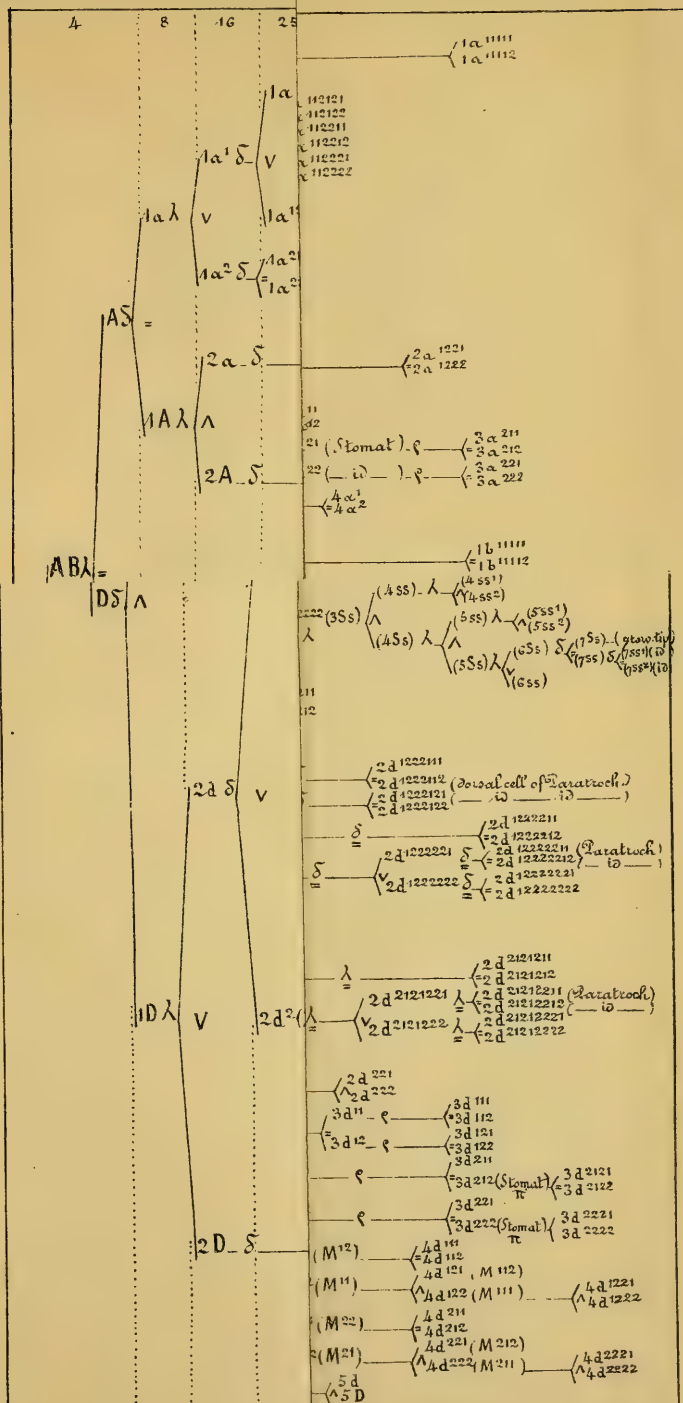 4 8 16 25
1a¹¹¹¹¹
1a¹¹¹¹²
1a
¹¹²¹²¹
¹¹²¹²²
¹¹²²¹¹
¹¹²²¹²
1a¹ δ ∨
¹¹²²²¹
¹¹²²²²
1aλ ∨
1a¹
1a² δ = 1a²
1a²
Aδ =
2a δ
= 2a¹²²¹
2a¹²²²
1Aλ ∧
¹¹
²¹ (Stomat) ρ = 3a²¹¹
3a²¹²
2A δ
²² (— id —) ρ = 3a²²¹
3a²²²
= 4a¹
4a²
1b¹¹¹¹¹
= 1b¹¹¹¹²
ABλ =
Dδ ∧
²²²² (3Ss) ∧ (4ss) λ ∧ (4ss¹)
(4ss²)
λ
(4Ss) λ ∧ (5ss) λ ∧ (5ss¹)
(5ss²)
(5Ss) λ ∨ (6Ss) δ (7Ss) (grow. tip)
(7ss) δ (7ss¹) (id)
(7ss²) (id)
(6ss)
²¹¹
¹²
2d δ ∨
= 2d¹²²²¹¹¹
2d¹²²²¹¹² (dorsal cell of Paratroch.)
= 2d¹²²²¹²¹ (— id — id —)
2d¹²²²¹²²
δ = 2d¹²²²²¹¹
2d¹²²²²¹²
δ ∨ 2d¹²²²²²¹ δ = 2d¹²²²²²¹¹ (Paratroch)
2d¹²²²²²¹² (— id —)
2d¹²²²²²² δ = 2d¹²²²²²²¹
2d¹²²²²²²²
λ = 2d²¹²¹²¹¹
2d²¹²¹²¹²
1Dλ ∨
2d² (λ ∨ 2d²¹²¹²²¹ λ = 2d²¹²¹²²¹¹ (Paratroch)
2d²¹²¹²²¹² (— id —)
2d²¹²¹²²² λ = 2d²¹²¹²²²¹
2d²¹²¹²²²²
∧ 2d²²¹
2d²²²
= 3d¹¹ ρ = 3d¹¹¹
3d¹¹²
3d¹² ρ = 3d¹²¹
3d¹²²
ρ = 3d²¹¹
3d²¹² (Stomat) π = 3d²¹²¹
3d²¹²²
ρ = 3d²²¹
3d²²² (Stomat) π 3d²²²¹
3d²²²²
2D δ
(M¹²) = 4d¹¹¹
4d¹¹²
(M¹¹) ∧ 4d¹²¹ (M¹¹²)
4d¹²² (M¹¹¹) ∧ 4d¹²²¹
4d¹²²²
(M²²) = 4d²¹¹
4d²¹²
(M²¹) ∧ 4d²²¹ (M²¹²)
4d²²² (M²¹¹) ∧ 4d²²²¹
4d²²²²
∧ 5d
5D